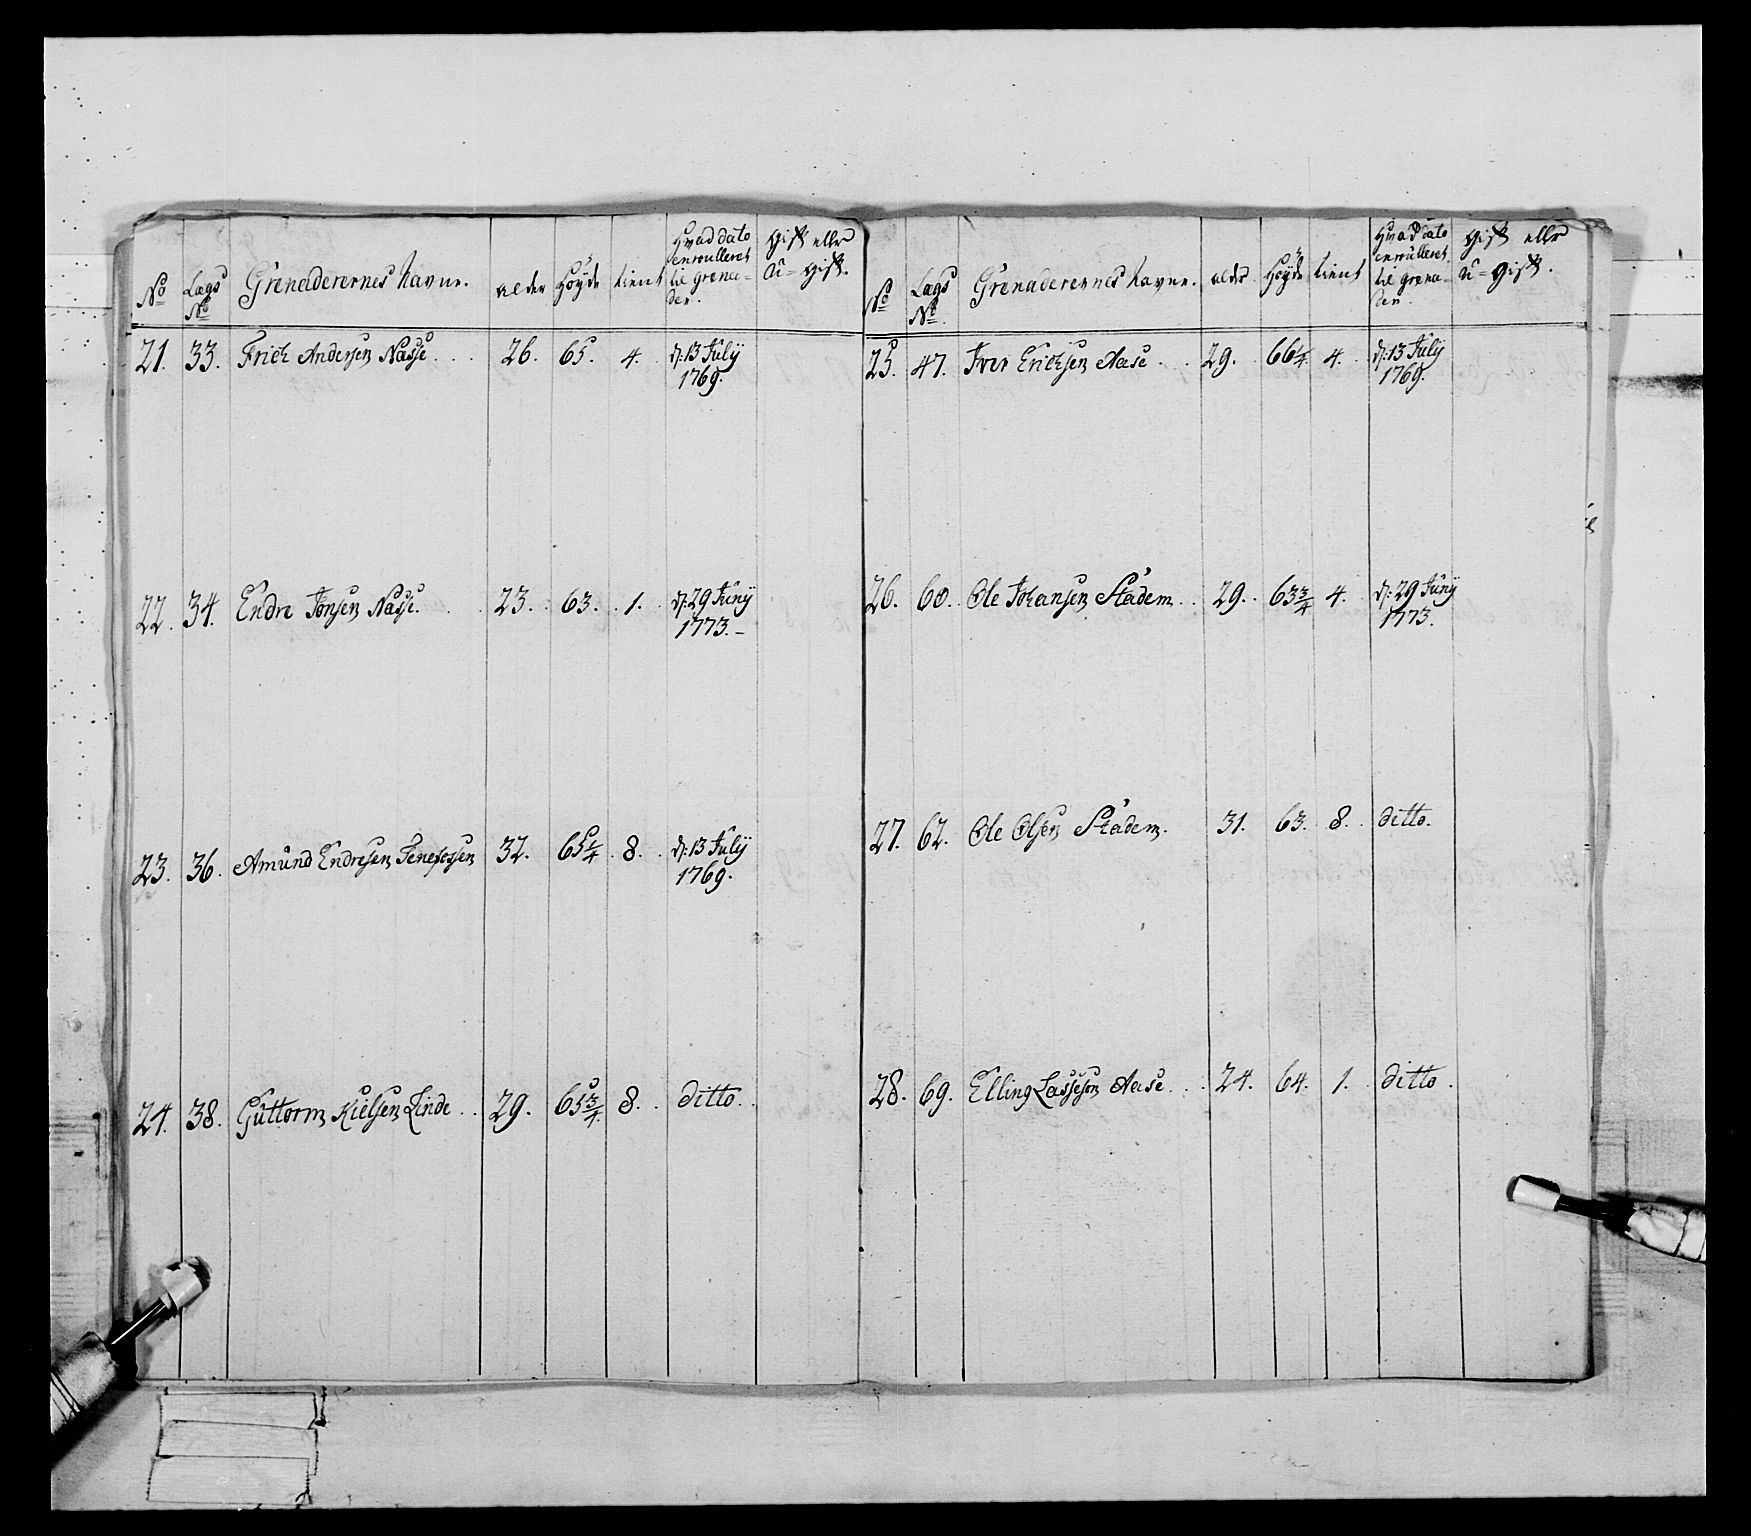 No Lægs No Grenaderernes Navne. alder Höyde tient Hvad dato enroulleret til Grenader. Gift eller u=Gift.
21. 33. Frich Andersen Nasse . . . 26. 65. 4. d: 13 July 1769.
22. 34. Endre Jonsen Nasse. . . 23. 63. 1. d: 29 Juny 1773.
23. 36. Amund Endresen 32. 65 1/4. 8. d: 13 July 1769.
24. 38. Guttorm Nielsen Linde . . 29. 65 3/4. 8. ditto.
No Lægs No Grenaderernes Navne. alder Höyde tient Hvad dato enroulleret til Grenader. Gift eller u=Gift.
25. 47. Iver Erichsen Aase . . 29. 66 1/4. 4. d: 13 July 1769.
26. 60. Ole Johansen Stadem . . 29. 63 3/4 4. d: 29 Juny 1773.
27. 62. Ole Olsen Stadem. 31. 63. 8. ditto.
28. 69. Elling Lassesen Aase . . . 24. 64. 1. ditto.